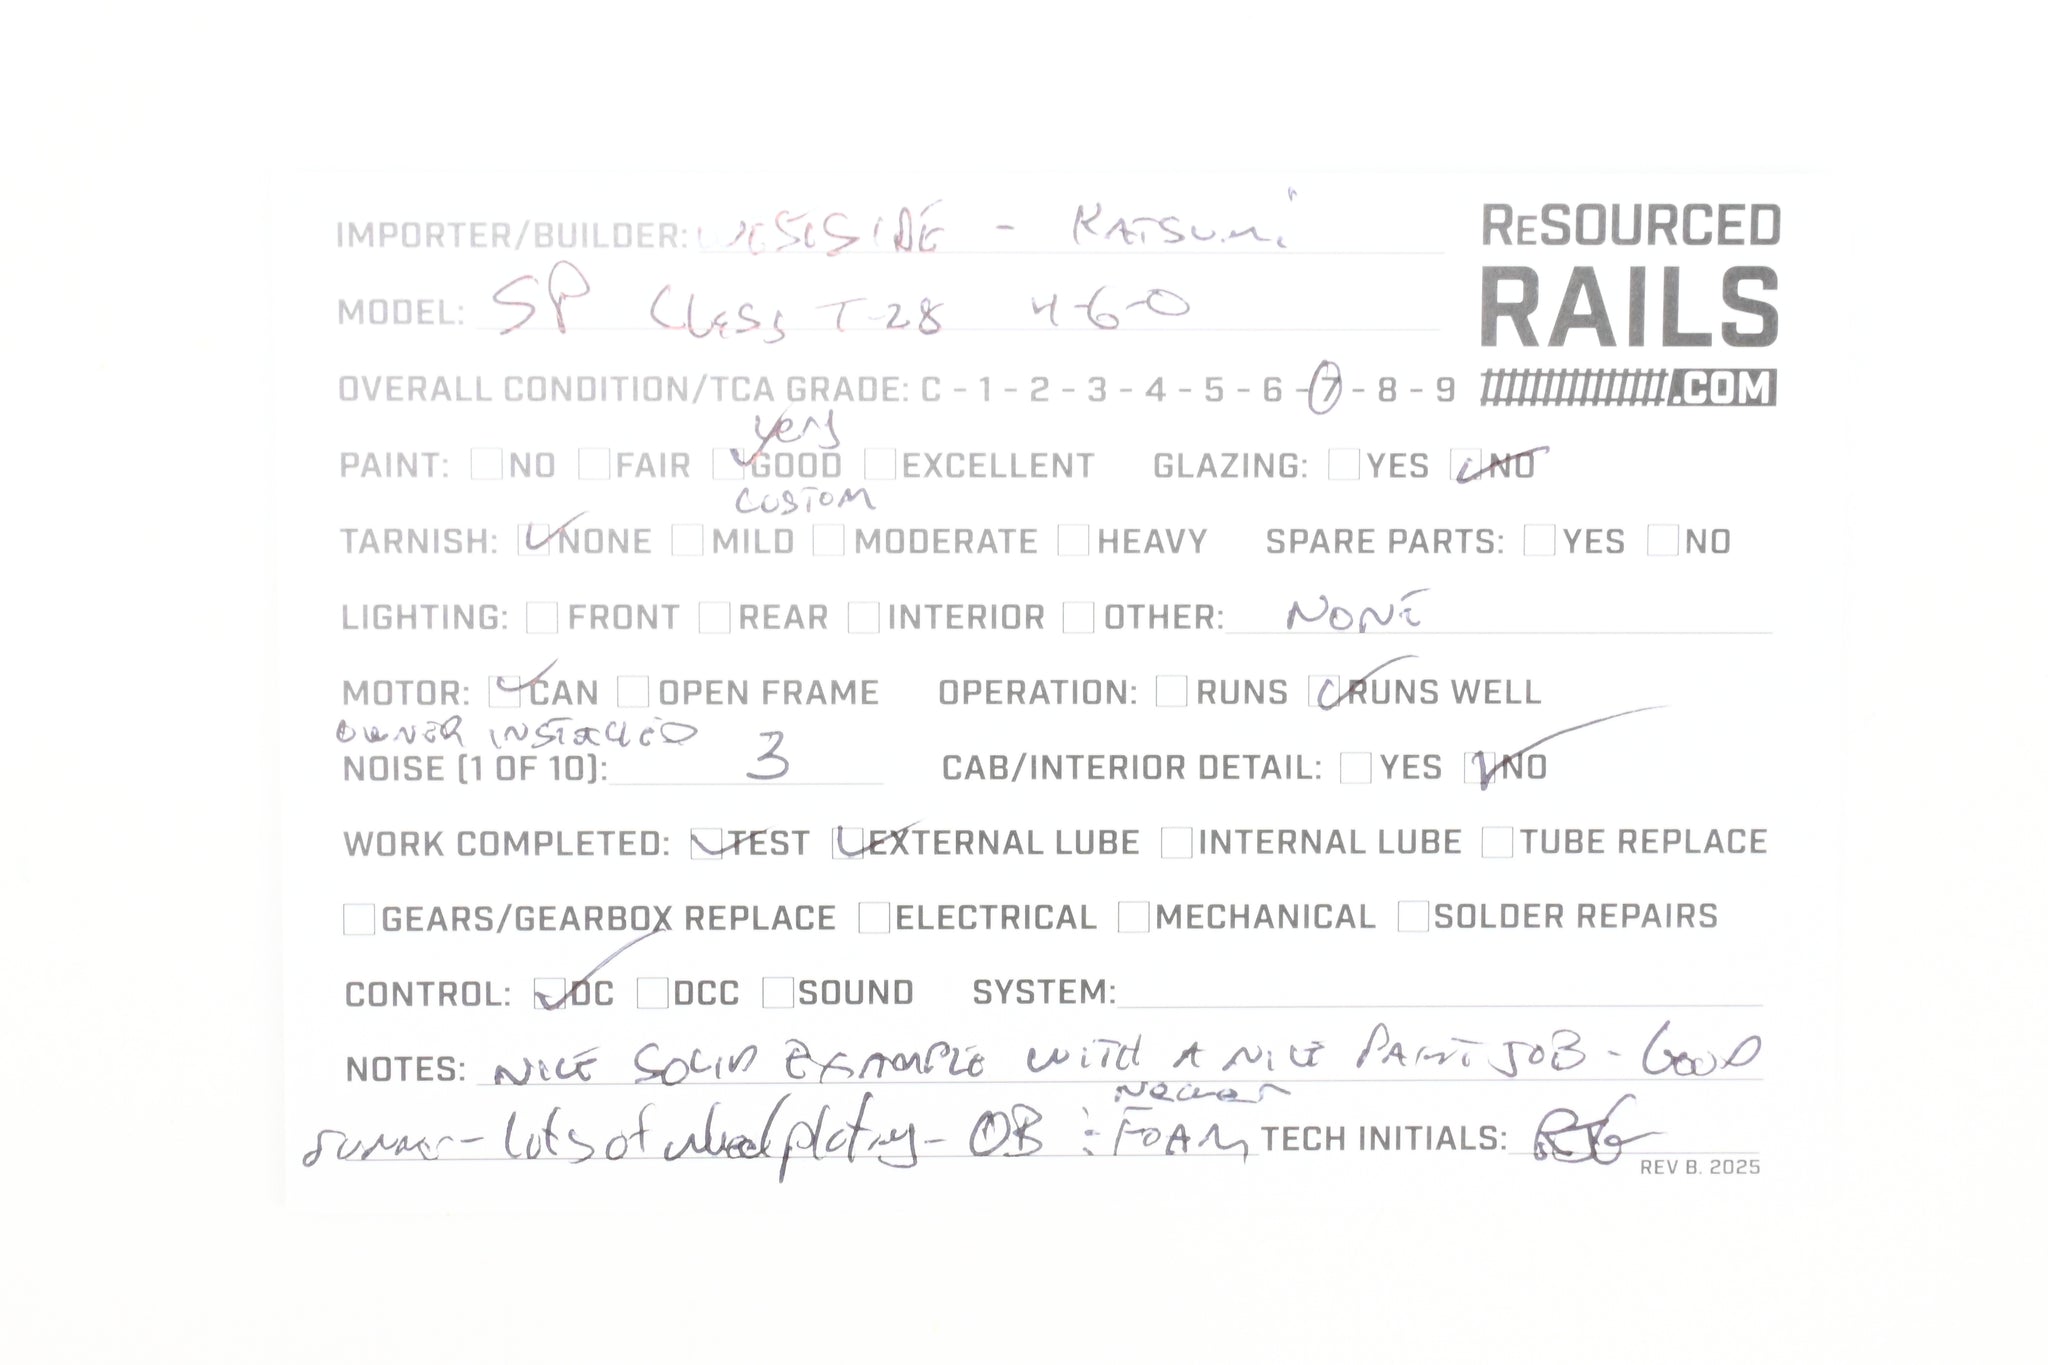 IMPORTER/BUILDER: WESTSIDE - KATSUMI
RESOURCED
RAILS
.COM
MODEL: SP CLASS T-28 4-6-0
OVERALL CONDITION/TCA GRADE: C - 1 - 2 - 3 - 4 - 5 - 6 - 7 - 8 - 9
very
PAINT: NO FAIR GOOD EXCELLENT GLAZING: YES NO
CUSTOM
TARNISH: NONE MILD MODERATE HEAVY SPARE PARTS: YES NO
LIGHTING: FRONT REAR INTERIOR OTHER: NONE
MOTOR: CAN OPEN FRAME OPERATION: RUNS RUNS WELL
OWNER INSTALLED
NOISE (1 OF 10): 3 CAB/INTERIOR DETAIL: YES NO
WORK COMPLETED: TEST EXTERNAL LUBE INTERNAL LUBE TUBE REPLACE
GEARS/GEARBOX REPLACE ELECTRICAL MECHANICAL SOLDER REPAIRS
CONTROL: DC DCC SOUND SYSTEM:
NOTES: NICE SOLID EXAMPLE WITH A NICE PAINT JOB - GOOD
NEWER
runner - lots of wheel plating - OB : FOAM TECH INITIALS:
REV B. 2025